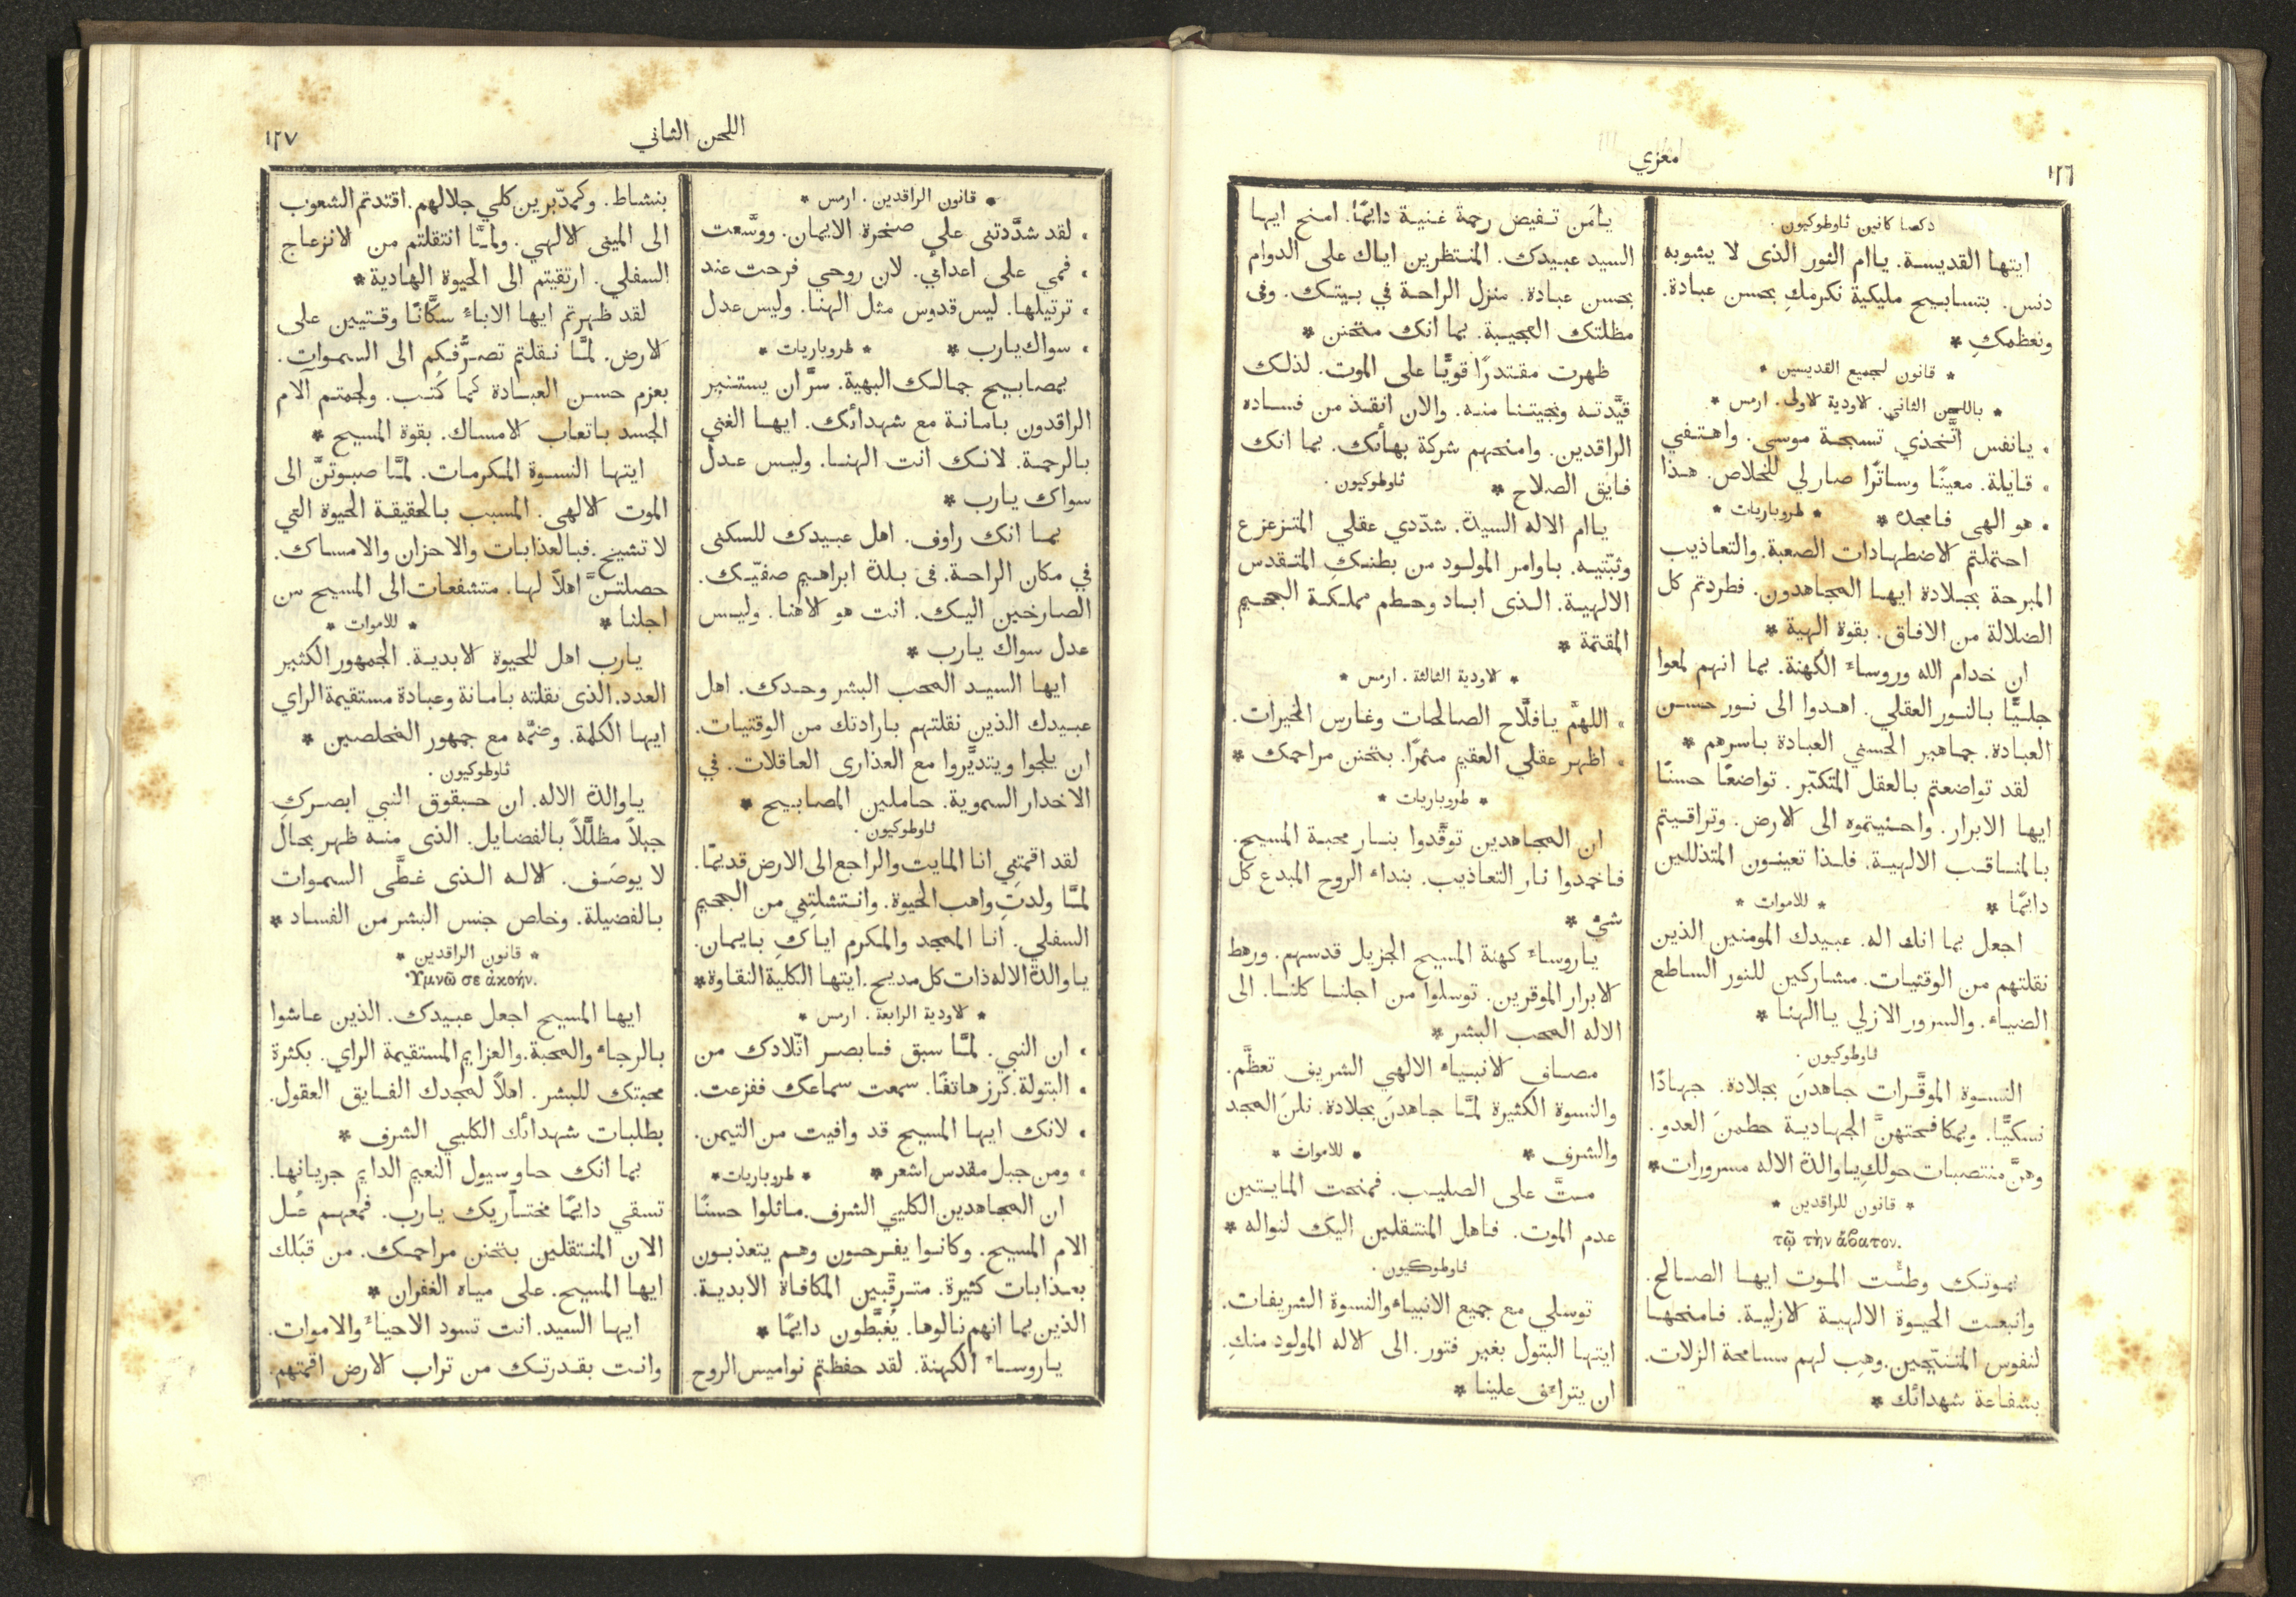 ١٢٦
معزي
دكصا كانين ثاوطوكيون .
ايتها القديسة. ياام النور الذى لا يشوبه
دنس. بتسابيح مليكية نكرمكِ بحسن عبادة.
ونعظمكِ *
* قانون لجميع القديسين *
* باللحن الثاني. الاودية الاولى. ارمس *
، يانفس اتَّخذي تسبحة موسى. واهتفي
، قايلة. معينًا وساترًا صارلي للخلاص. هذا
، هو الهي فامجده * * طروباريات *
احتملتم الاضطهادات الصعبة. والتعاذيب
المبرحة بجلادة ايها المجاهدون. فطردتم كل
الضلالة من الافاق. بقوة الهية *
ان خدام الله وروساء الكهنة. بما انهم لمعوا
جليًّا بالنور العقلي. اهدوا الى نور حسن
العبادة. جماهير الحسني العبادة باسرهم *
لقد تواضعتم بالعقل المتكبّر. تواضعًا حسنًا
ايها الابرار. واحنيتموه الى الارض. وتراقيتم
بالمناقب الالهية. فلذا تعينون المتذللين
دايمًا * * للاموات *
اجعل بما انك اله. عبيدك المومنين الذين
نقلتهم من الوقتيات. مشاركين للنور الساطع
الضياء. والسرور الازلي ياالهنا *
ثاوطوكيون .
النسوة الموقَّرات جاهدنَ بجلادة. جهادًا
نسكيًّا. وبمكافحتهنَّ الجهادية حطمنَ العدو.
وهنَّ منتصبات حولكِ ياوالدة الاله مسرورات *
* قانون للراقدين *
τῷ τὴν ἄβατον.
بموتك وطئت الموت ايها الصالح.
وانبعت الحيوة الالهية الازلية. فامنحها
لنفوس المتنيّحين. وهِب لهم مسامحة الزلات.
بشفاعة شهدائك *
يامَن تفيض رحمة غنية دايمًا. امنح ايها
السيد عبيدك. المنتظرين اياك على الدوام
بحسن عبادة. منزل الراحة في بيتك. وفى
مظلتك العجيبة. بما انك متحنن *
ظهرت مقتدرًا قويًّا على الموت. لذلك
قيَّدته ونجيتنا منه. والان انقذ من فساده
الراقدين. وامنحهم شركة بهائك. بما انك
فايق الصلاح * ثاوطوكيون .
ياام الاله السيدة. شدّدي عقلي المتزعزع
وثبّتيه. باوامر المولود من بطنكِ المتقدس
الالهية. الذى اباد وحطم مملكة الجحيم
المقتمة *
* الاودية الثالثة . ارمس *
، اللهمَّ يافلَّاح الصالحات وغارس الخيرات.
، اظهر عقلي العقيم مثمرًا. بتحنن مراحمك *
* طروباريات *
ان المجاهدين توقَّدوا بنار محبة المسيح.
فاخمدوا نار التعاذيب. بنداء الروح المبدع كل
شيء *
ياروساء كهنة المسيح الجزيل قدسهم. ورهط
الابرار الموقرين. توسلوا من اجلنا كلنا. الى
الاله المحب البشر *
مصاف الانبياء الالهي الشريف تعظَّم.
والنسوة الكثيرة لمَّا جاهدنَ بجلادة. نلنَ المجد
والشرف * * للاموات *
متَّ على الصليب. فمنحت المايتين
عدم الموت. فاهل المنتقلين اليك لنواله *
ثاوطوكيون .
توسلي مع جميع الانبياء والنسوة الشريفات.
ايتها البتول بغير فتور. الى الاله المولود منكِ.
ان يتراءف علينا *
اللحن الثاني
١٢٧
* قانون الراقدين . ارمس *
، لقد شدَّدتنى على صخرة الايمان. ووسَّعت
، فمي على اعدائي. لان روحي فرحت عند
، ترتيلها. ليس قدوس مثل الهنا. وليس عدل
، سواك يارب * * طروباريات *
بمصابيح جمالك البهية. سرَّ ان يستنير
الراقدون بامانة مع شهدائك. ايها الغني
بالرحمة. لانك انت الهنا. وليس عدل
سواك يارب *
بما انك راوف. اهل عبيدك للسكنى
في مكان الراحة. فى بلدة ابراهيم صفيّك.
الصارخين اليك. انت هو الاهنا. وليس
عدل سواك يارب *
ايها السيد المحب البشر وحدك. اهل
عبيدك الذين نقلتهم بارادتك من الوقتيات.
ان يلجوا ويتديَّروا مع العذارى العاقلات. في
الاخدار السموية. حاملين المصابيح *
ثاوطوكيون .
لقد اقمتِني انا المايت والراجع الى الارض قديمًا.
لمَّا ولدتِ واهب الحيوة. وانتشلتِني من الجحيم
السفلي. انا الممجد والمكرم اياكِ بايمان.
ياوالدة الاله ذات كل مديح. ايتها الكلية النقاوة *
* الاودية الرابعة . ارمس *
، ان النبي. لمَّا سبق فابصر اتّلادك من
، البتولة. كرز هاتفًا. سمعت سماعك ففزعت.
، لانك ايها المسيح قد وافيت من التيمن.
، ومن جبل مقدس اشعر * * طروباريات *
ان المجاهدين الكليي الشرف. ماثلوا حسنًا
الام المسيح. وكانوا يفرحون وهم يتعذبون
بعذابات كثيرة. مترقّبين المكافاة الابدية.
الذين بما انهم نالوها. يُغبَّطون دايمًا *
ياروساء الكهنة. لقد حفظتم نواميس الروح
بنشاط. وكمدّبرين كلي جلالهم. اقتدتم الشعوب
الى المينى الالهي. ولمَّا انتقلتم من الانزعاج
السفلي. ارتقيتم الى الحيوة الهادية *
لقد ظهرتم ايها الاباء سكَّانًا وقتيين على
الارض. لمَّا نقلتم تصرُّفكم الى السموات.
بعزم حسن العبادة كما كُتب. ولجمتم آلام
الجسد باتعاب الامساك. بقوة المسيح *
ايتها النسوة المكرمات. لمَّا صبوتنَّ الى
الموت الالهى. المسبب بالحقيقة الحيوة التي
لا تشيخ. فبالعذابات والاحزان والامساك.
حصلتنَّ اهلًا لها. متشفعات الى المسيح من
اجلنا * * للاموات *
يارب اهل للحيوة الابدية. الجمهور الكثير
العدد. الذى نقلته بامانة وعبادة مستقيمة الراي
ايها الكلمة. وضمَّه مع جمهور المخلصين *
ثاوطوكيون .
ياوالدة الاله. ان حبقوق النبي ابصركِ
جبلًا مظللًا بالفضايل. الذى منه ظهر بحال
لا يوصَف. الاله الذى غطَّى السموات
بالفضيلة. وخلص جنس البشر من الفساد *
* قانون الراقدين *
Ὑμνῶ σε ἀκοήν.
ايها المسيح اجعل عبيدك. الذين عاشوا
بالرجاء والمحبة. والعزايم المستقيمة الراي. بكثرة
محبتك للبشر. اهلًا لمجدك الفايق العقول.
بطلبات شهدائك الكليي الشرف *
بما انك حاوٍ سيول النعيم الدايم جريانها.
تسقي دايمًا مختاريك يارب. فمعهم عُل
الان المنتقلين بتحنن مراحمك. من قبَلك
ايها المسيح. على مياه الغفران *
ايها السيد. انت تسود الاحياء والاموات.
وانت بقدرتك من تراب الارض اقمتهم.